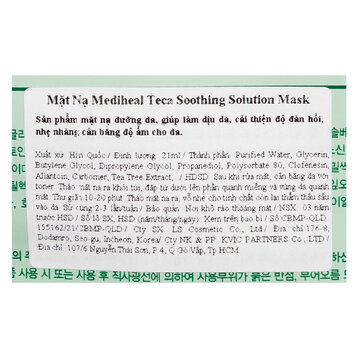 Mặt Nạ Mediheal Teca Soothing Solution Mask
Sản phẩm mặt nạ dưỡng da, giúp làm dịu da, cải thiện độ đàn hồi,
nhẹ nhàng cân bằng độ ẩm cho da.
Xuất xứ Hàn Quốc / Định lượng 21ml / Thành phần: Purified Water, Glycerin,
Butylene Glycol, Dipropylene Glycol, Propanediol, Polysorbate 80, Clofenesin,
Allantoin, Carbomer, Tea Tree Extract, / HDSD Sau khi rửa mặt, cân bằng da với
toner. Tháo mặt nạ ra khỏi túi, đắp từ dưới lên phần quanh miệng và vùng da quanh
mắt. Thư giãn 10-20 phút. Tháo mặt nạ ra, vỗ nhẹ cho tinh chất còn lại thẩm thấu sâu
vào da. Sử dụng 2-3 lần/tuần / Bảo quản: Nơi khô ráo thoáng mát / NSX: 03 năm
trước HSD / Số lô SX, HSD (năm/tháng/ngày): Xem trên bao bì / Số CBMP-QLD:
155162/21/CBMP-QLD / Cty SX: LS Cosmetic Co., Ltd / Địa chỉ: 176-8,
Dodamro, Seo-gu, Incheon, Korea/ Cty NK & PP: KVIC PARTNERS Co., LTD /
Địa chỉ: 107/6 Nguyễn Thái Sơn, P 4, Q Gò Vấp, Tp HCM.
사용 시 또는 사용 후 직사광선에 의하여 사용부위가 붉은 반점, 부어오름